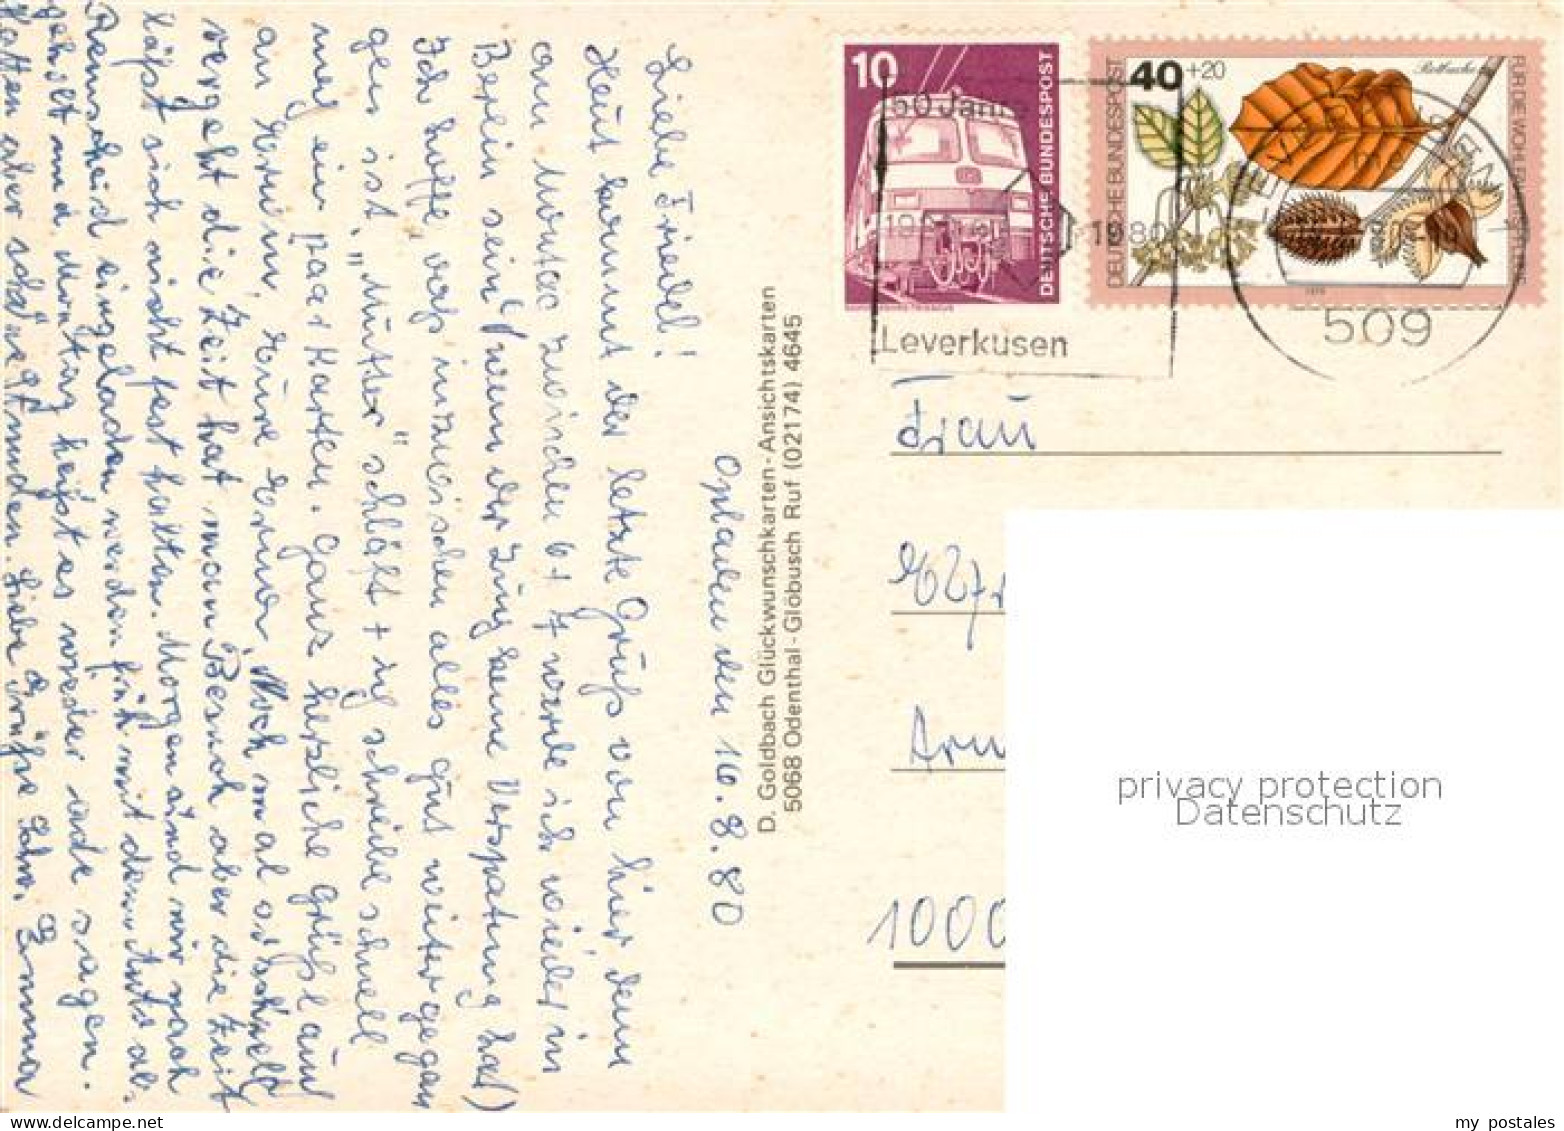 Opladen den 16.8.80
Liebe Friedel!
Heut kommt der letzte Gruß von hier denn
am Montag zwischen 6 + 7 werde ich wieder in
Berlin sein (wenn der Zug keine Verspätung hat)
Ich hoffe, daß inzwischen alles gut weiter gegan
gen ist. „Mutter“ schläft + ich schreibe schnell
mey ein paar Karten. Ganz herzliche Grüße auch
an Eure Erna. Noch mal
vergeht die Zeit hat man Besuch aber die Zeit
läßt sich nicht fest halten. Morgen sind wir nach
Remscheid eingeladen werden früh mit dem Auto ab-
geholt und Montag heißt es wieder ade sagen.
Hatten aber schöne Stunden. Liebe Grüße Ihre Emma
D. Goldbach Glückwunschkarten-Ansichtskarten
5068 Odenthal-Globusch Ruf (02174) 4645
10
DEUTSCHE BUNDESPOST
40+20
Rotbuche
DEUTSCHE BUNDESPOST
FÜR DIE WOHLFAHRTSPFLEGE
1979
50 Jahre
1980
Leverkusen
LEVERKUSEN
509
Frau
Arn
1000
privacy protection
Datenschutz
my postales